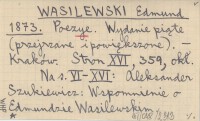 WASILEWSKI Edmund
1873. Poezye. Wydanie piąte
(przejrzane i powiększone). –
Kraków. Stron XVI, 359, okł.
Na s. VI-XVI: Aleksander
Szukiewicz: Wspomnienie o
Edmundzie Wasilewskim.